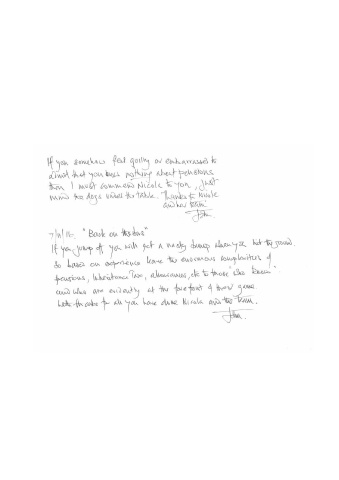 If you somehow feel guilty or embarrassed to
admit that you know nothing about pensions
then I must commend Nicole to you, Just
mind the dogs under the table. Thanks to Nicole
and her team
John
"Back on the bus"
If you jump off you will get a nasty bump when you hit the ground.
So based on experience leave the enormous complexities of
pensions, Inheritance Tax, allowances, etc to those "who know"
and who are evidently at the forefront of their game.
With thanks for all you have done Nicole and the Team.
John.